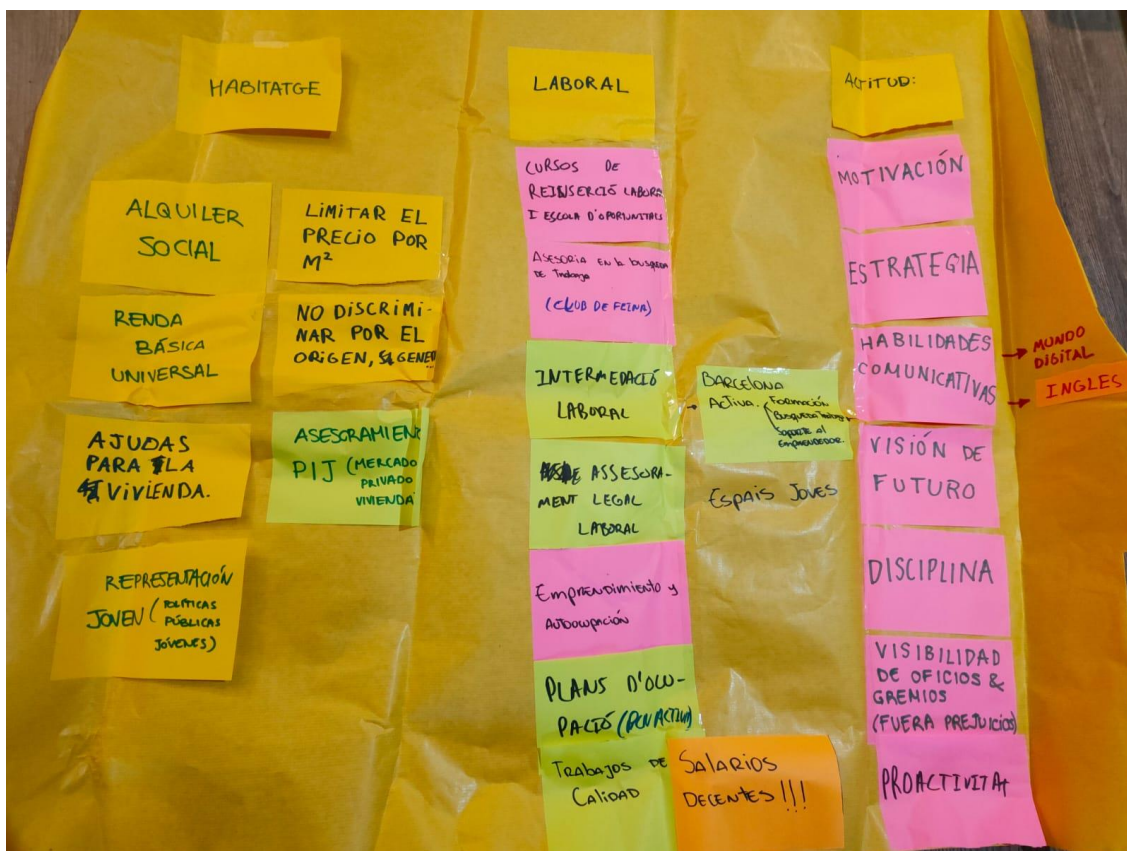 HABITATGE
ALQUILER
SOCIAL
LIMITAR EL
PRECIO POR
M²
RENDA
BÁSICA
UNIVERSAL
NO DISCRIMI-
NAR POR EL
ORIGEN,
AJUDAS
PARA LA
VIVIENDA.
ASESORAMIEN
PIJ (MERCADO
PRIVADO
VIVIENDA
REPRESENTACIÓN
JOVEN (POLÍTICAS
PÚBLICAS
JÓVENES)
LABORAL
CURSOS DE
REINSERCIÓ LABORA
I ESCOLA D'OPORTUNITATS
ASESORIA EN LA BUSQUEDA
DE TRABAJO
(CLUB DE FEINA)
INTERMEDACIÓ
LABORAL
→ BARCELONA
ACTIVA. Formación
BUSQUEDA TRABAJO
SOPORTE AL
EMPRENDEDOR.
ASSESORA-
MENT LEGAL
LABORAL
ESPAIS JOVES
Emprendimiento y
Autoocupación
PLANS D'OCU-
PACIÓ (BCN ACTIVA)
TRABAJOS DE
CALIDAD
SALARIOS
DECENTES!!!
ACTITUD:
MOTIVACIÓN
ESTRATEGIA
HABILIDADES
COMUNICATIVAS
→ MUNDO
DIGITAL
→ INGLES
VISIÓN DE
FUTURO
DISCIPLINA
VISIBILIDAD
DE OFICIOS &
GREMIOS
(FUERA PREJUICIOS)
PROACTIVITAT